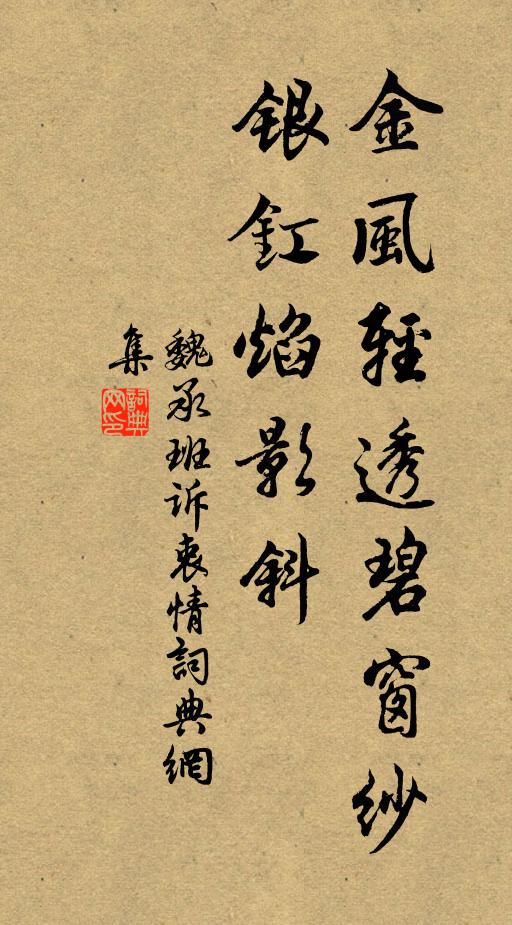 金風輕透碧窗紗
銀釭焰影斜
魏承班訴衷情詞典網
集
詞典
网印